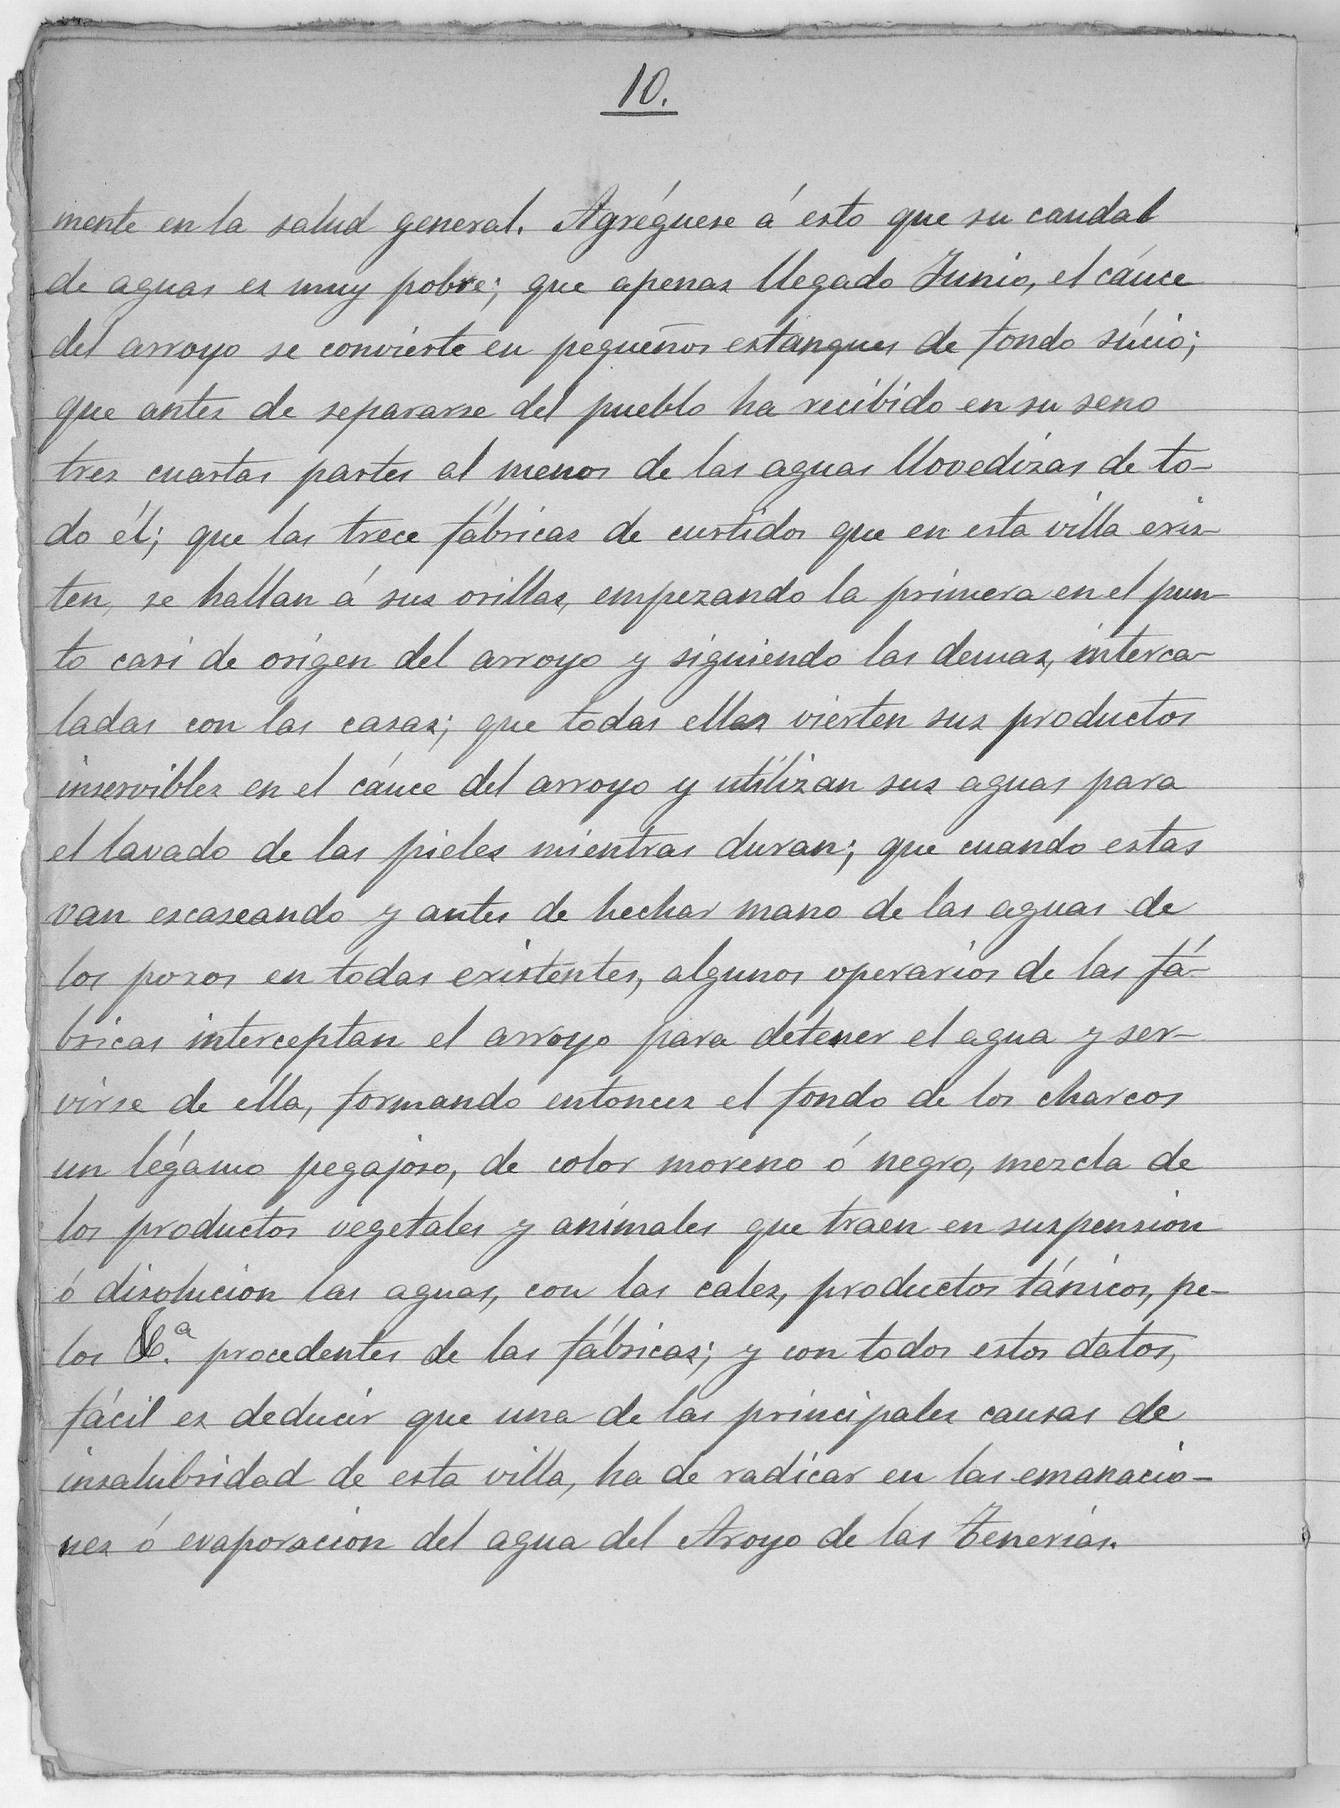 10.
mente en la salud general. Agréguese á esto que su caudal
de aguas es muy pobre; que apenas llegado Junio, el cáuce
del arroyo se convierte en pequeños estanques de fondo súcio;
que antes de separarse del pueblo ha recibido en su seno
tres cuartas partes al menos de las aguas llovedizas de to-
do él; que las trece fábricas de curtidos que en esta villa exis-
ten, se hallan á sus orillas, empezando la primera en el pun-
to casi de orígen del arroyo y siguiendo las demas, interca-
ladas con las casas; que todas ellas vierten sus productos
inservibles en el cáuce del arroyo y utilizan sus aguas para
el lavado de las pieles mientras duran; que cuando estas
van escaseando y antes de hechar mano de las aguas de
los pozos en todas existentes, algunos operarios de las fá-
bricas interceptan el arroyo para detener el agua y ser-
virse de ella, formando entonces el fondo de los charcos
un légamo pegajoso, de color moreno ó negro, mezcla de
los productos vegetales y animales que traen en suspension
ó disolucion las aguas, con las cales, productos tánicos, pe-
los &.ª procedentes de las fábricas; y con todos estos datos,
fácil es deducir que una de las principales causas de
insalubridad de esta villa, ha de radicar en las emanacio-
nes ó evaporacion del agua del Aroyo de las Tenerias.